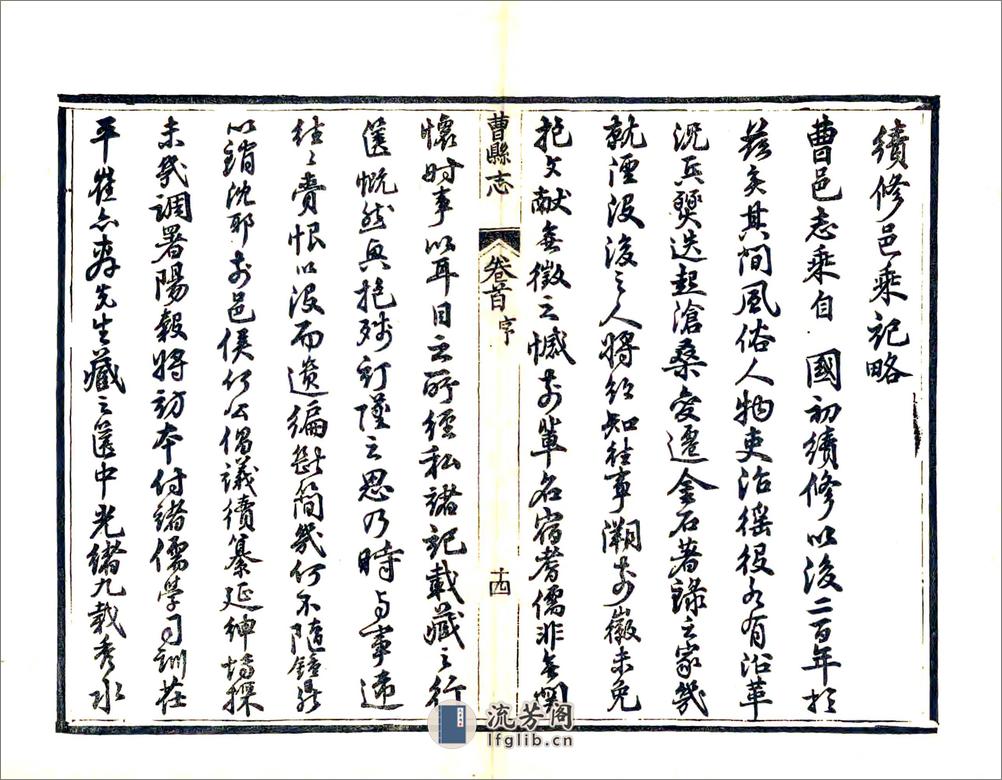 續修邑乘記略
曹邑志乘自 國初續修以後二百年於
茲矣其間風俗人物吏治徭役各有沿革
況兵燹迭起滄桑變遷金石著錄之家幾
就湮沒後之人將欲知往事溯前徽未免
抱文献無徵之憾前輩名宿耆儒非無關
曹縣志
卷首 序
十四
懷時事以耳目之所經私諸記載藏之行
篋慨然興抱殘訂墜之思乃時与事違
往々賫恨以沒而遺編斷簡幾何不隨鐘鼎
以銷沈耶前邑侯何公倡議續纂延紳採
未幾調署陽穀將訪本付諸儒學司訓莊
平崔先生藏之篋中光緒九載秀水
流芳阁
lfglib.cn